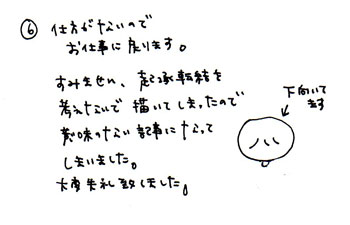 ⑥ 仕方がないので
お仕事に戻ります。
すみません、起承転結を
考えないで描いてしまったので
意味のない記事になって
しまいました。
大変失礼致しました。
下向いて
ます